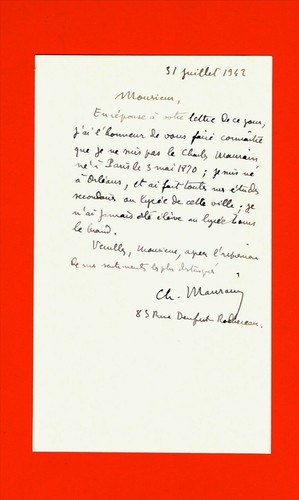 31 juillet 1942
Monsieur,
En réponse à votre lettre de ce jour,
j'ai l'honneur de vous faire connaître
que je ne suis pas le Charles Maurain
né à Paris le 3 mai 1870 ; je suis né
à Orléans, et ai fait toutes mes études
secondaires au lycée de cette ville ; je
n'ai jamais été élève au lycée Louis
le Grand.
Veuillez, Monsieur, agréer l'expression
de mes sentiments les plus distingués
Ch. Maurain
83 Rue Denfert-Rochereau.